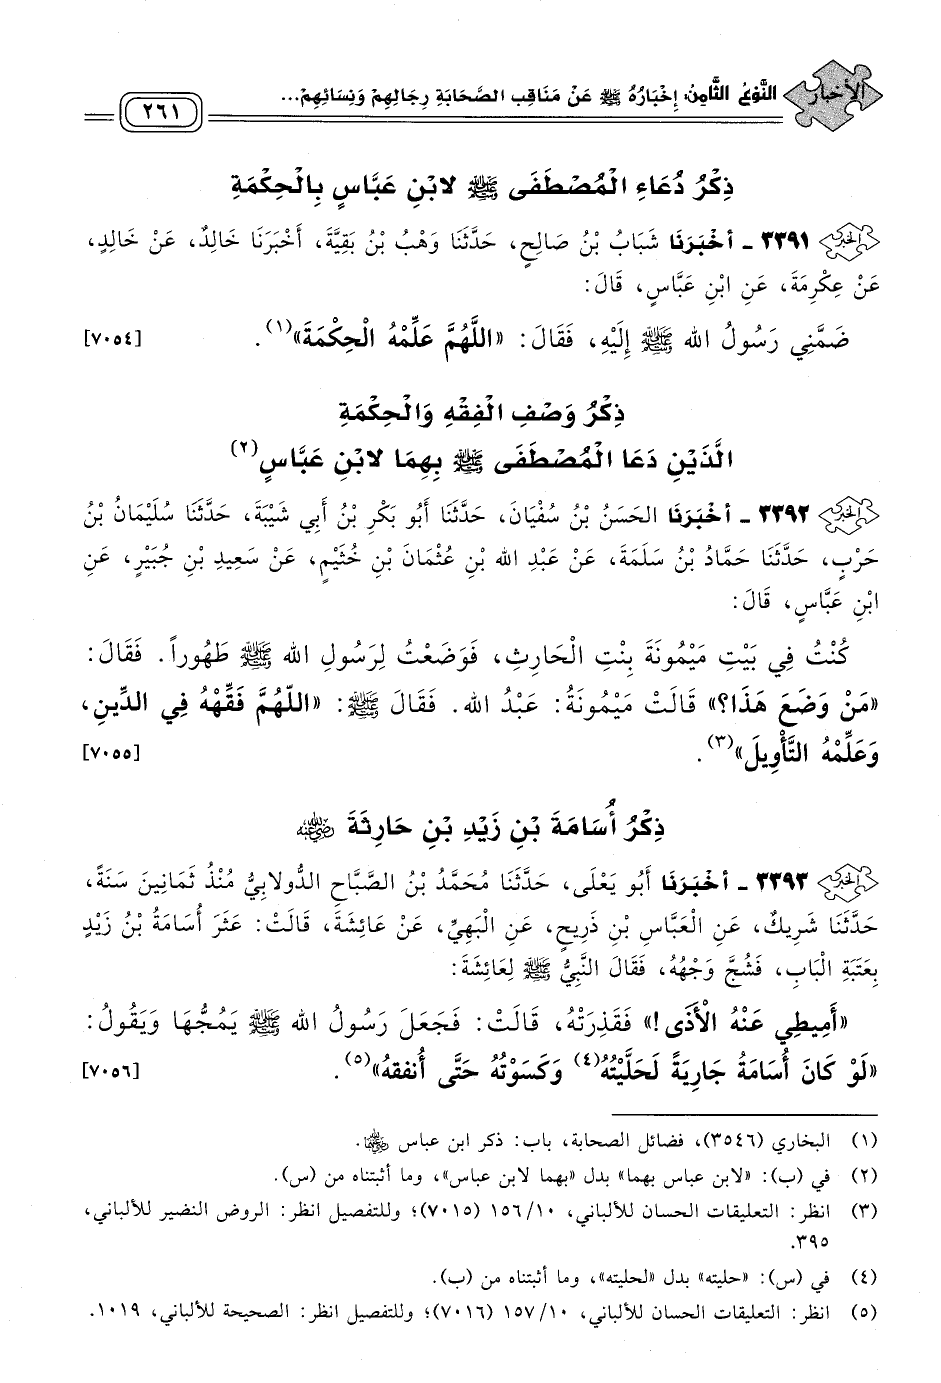 الأخبار النَّوْعُ الثَّامِنُ: إِخْبَارُهُ ﷺ عَنْ مَنَاقِبِ الصَّحَابَةِ رِجَالِهِمْ وَنِسَائِهِمْ...
٢٦١
ذِكْرُ دُعَاءِ الْمُصْطَفَى ﷺ لابْنِ عَبَّاسٍ بِالْحِكْمَةِ
٣٣٩١ - أَخْبَرَنَا شَبَابُ بْنُ صَالِحٍ، حَدَّثَنَا وَهْبُ بْنُ بَقِيَّةَ، أَخْبَرَنَا خَالِدٌ، عَنْ خَالِدٍ،
عَنْ عِكْرِمَةَ، عَنِ ابْنِ عَبَّاسٍ، قَالَ:
ضَمَّنِي رَسُولُ الله ﷺ إِلَيْهِ، فَقَالَ: «اللَّهُمَّ عَلِّمْهُ الْحِكْمَةَ»(١). [٧٠٥٤]
ذِكْرُ وَصْفِ الْفِقْهِ وَالْحِكْمَةِ
الَّذَيْنِ دَعَا الْمُصْطَفَى ﷺ بِهِمَا لابْنِ عَبَّاسٍ(٢)
٣٣٩٢ - أَخْبَرَنَا الحَسَنُ بْنُ سُفْيَانَ، حَدَّثَنَا أَبُو بَكْرِ بْنُ أَبِي شَيْبَةَ، حَدَّثَنَا سُلَيْمَانُ بْنُ
حَرْبٍ، حَدَّثَنَا حَمَّادُ بْنُ سَلَمَةَ، عَنْ عَبْدِ الله بْنِ عُثْمَانَ بْنِ خُثَيْمٍ، عَنْ سَعِيدِ بْنِ جُبَيْرٍ، عَنِ
ابْنِ عَبَّاسٍ، قَالَ:
كُنْتُ فِي بَيْتِ مَيْمُونَةَ بِنْتِ الْحَارِثِ، فَوَضَعْتُ لِرَسُولِ الله ﷺ طَهُوراً. فَقَالَ:
«مَنْ وَضَعَ هَذَا؟» قَالَتْ مَيْمُونَةُ: عَبْدُ الله. فَقَالَ ﷺ: «اللّهُمَّ فَقِّهْهُ فِي الدِّينِ،
وَعَلِّمْهُ التَّأْوِيلَ»(٣). [٧٠٥٥]
ذِكْرُ أُسَامَةَ بْنِ زَيْدِ بْنِ حَارِثَةَ رضي الله عنه
٣٣٩٣ - أَخْبَرَنَا أَبُو يَعْلَى، حَدَّثَنَا مُحَمَّدُ بْنُ الصَّبَّاحِ الدُّولابِيُّ مُنْذُ ثَمَانِينَ سَنَةً،
حَدَّثَنَا شَرِيكٌ، عَنِ العَبَّاسِ بْنِ ذَرِيحٍ، عَنِ الْبَهِيِّ، عَنْ عَائِشَةَ، قَالَتْ: عَثَرَ أُسَامَةُ بْنُ زَيْدٍ
بِعَتَبَةِ الْبَابِ، فَشُجَّ وَجْهُهُ، فَقَالَ النَّبِيُّ ﷺ لِعَائِشَةَ:
«أَمِيطِي عَنْهُ الْأَذَى!» فَقَذِرَتْهُ، قَالَتْ: فَجَعَلَ رَسُولُ الله ﷺ يَمُجُّهَا وَيَقُولُ:
«لَوْ كَانَ أُسَامَةُ جَارِيَةً لَحَلَّيْتُهُ(٤) وَكَسَوْتُهُ حَتَّى أُنفقهُ»(٥). [٧٠٥٦]
(١) البخاري (٣٥٤٦)، فضائل الصحابة، باب: ذكر ابن عباس رضي الله عنهما.
(٢) في (ب): «لابن عباس بهما» بدل «بهما لابن عباس»، وما أثبتناه من (س).
(٣) انظر: التعليقات الحسان للألباني، ١٠/ ١٥٦ (٧٠١٥)؛ وللتفصيل انظر: الروض النضير للألباني،
٣٩٥.
(٤) في (س): «حليته» بدل «لحليته»، وما أثبتناه من (ب).
(٥) انظر: التعليقات الحسان للألباني، ١٠/ ١٥٧ (٧٠١٦)؛ وللتفصيل انظر: الصحيحة للألباني، ١٠١٩.